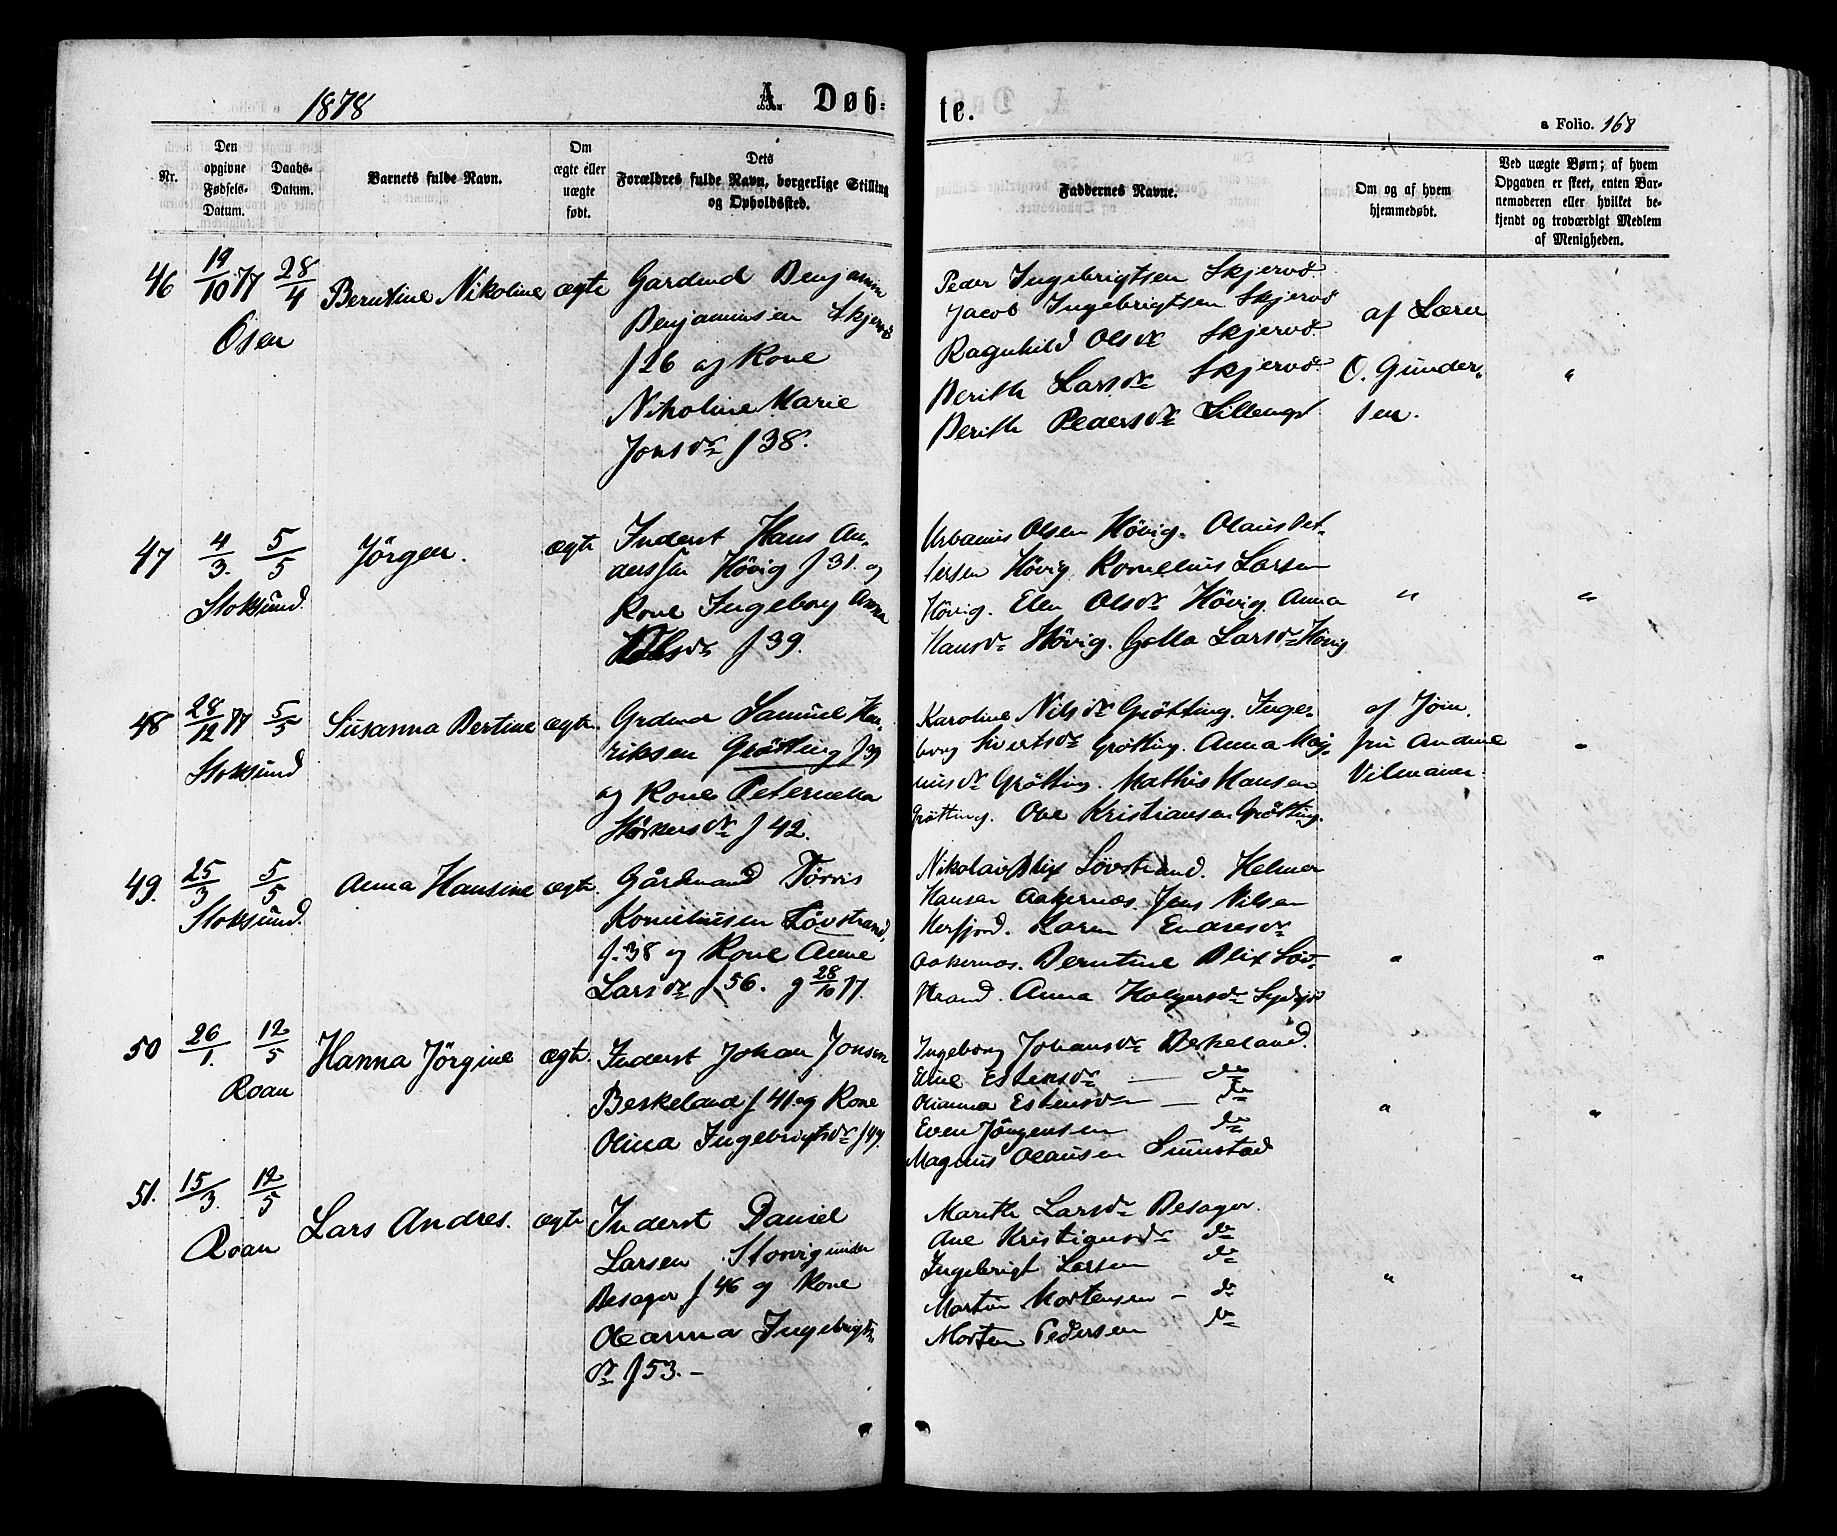 1878
A. Døb-
te.
a Folio. 168
Nr.
Den opgivne Fødsels-Datum.
Daabs-Datum.
Barnets fulde Navn.
Om ægte eller uægte født.
Dets Forældres fulde Navn, borgerlige Stilling og Opholdssted.
Faddernes Navne.
Om og af hvem hjemmedøbt.
Ved uægte Børn; af hvem
Opgaven er skeet, enten Bar-
nemoderen eller hvilket be-
kjendt og troværdigt Medlem
af Menigheden.
46 19/10 77 28/4 Berntine Nikoline ægte
Osen
Gardmd Benjamin
Benjaminsen Skjervø
f 26 og Kone
Nikoline Marie
Jonsdr f 38.
Peder Ingebrigtsen Skjervø.
Jacob Ingebrigtsen Skjervø
Ragnhild Olsdr Skjervø.
Berith Larsdr Skjervø.
Berith Pedersdr Sillengt
af Lærer
O. Gunder-
sen.
"
47 4/3. 5/5 Jörgen. ægte
Stoksund.
Inderst Hans An-
derssen Hövig f 31. og
Kone Ingeborg Anna
f 39.
Urbanus Olsen Hövig. Olaus Pet-
tersen Hövig. Kornelius Larsen
Hövig. Elen Olsdr Hövig. Anna
Hansdr Hövig. Golla Larsdr Hövig
" "
48 28/12 77 5/5 Susanna Bertine ægte.
Stoksund
Grdmd Samuel Hen-
riksen Grötting f 39
og Kone Peternella
Störkersdr f 42.
Karoline Nilsdr Grötting. Inge-
borg Sivertsdr Grötting. Anna Mag-
nusdr Grötting. Mathis Hansen
Grötting. Ove Kristiansen Grötting.
af Jom-
fru Andrine
Vilmann.
"
49. 25/3 5/5 Anna Hansine ægte.
Stoksund.
Gårdmand Törris
Korneliusen Lövstrand,
f. 38 og Kone Anne
Larsdr f 56. g 28/10 77.
Nikolai Blix Lövstrand. Helmer
Hansen Aakernæs. Jens Nilsen
Herfjord. Karen Endresdr
Aakernæs. Berntine Blix Löv-
strand. Anna Holgersdr
" "
50 26/1. 12/5 Hanna Jörgine ægte.
Roan
Inderst Johan Jonsen
Beskeland f 41. og Kone
Olina Ingebrigtsdr f 49.
Ingeborg Johansdr Beskeland.
Eline Estensdr — do
Olianna Estensdr — do
Even Jörgensen do
Magnus Olausen Sumstad
" "
51. 15/3. 12/5 Lars Andres. ægte
Roan
Inderst Daniel
Larsen Storvig under
Besager f 46 og Kone
Oleanna Ingebrigts-
dr f 53. —
Marith Larsdr Besager.
Ane Kristiansdr do
Ingebrigt Larsen do
Martin Mortensen - do
Morten Pedersen do
" "